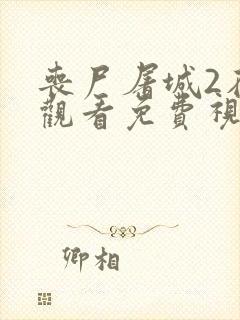 喪尸屠城2在
觀看免費視
卿相